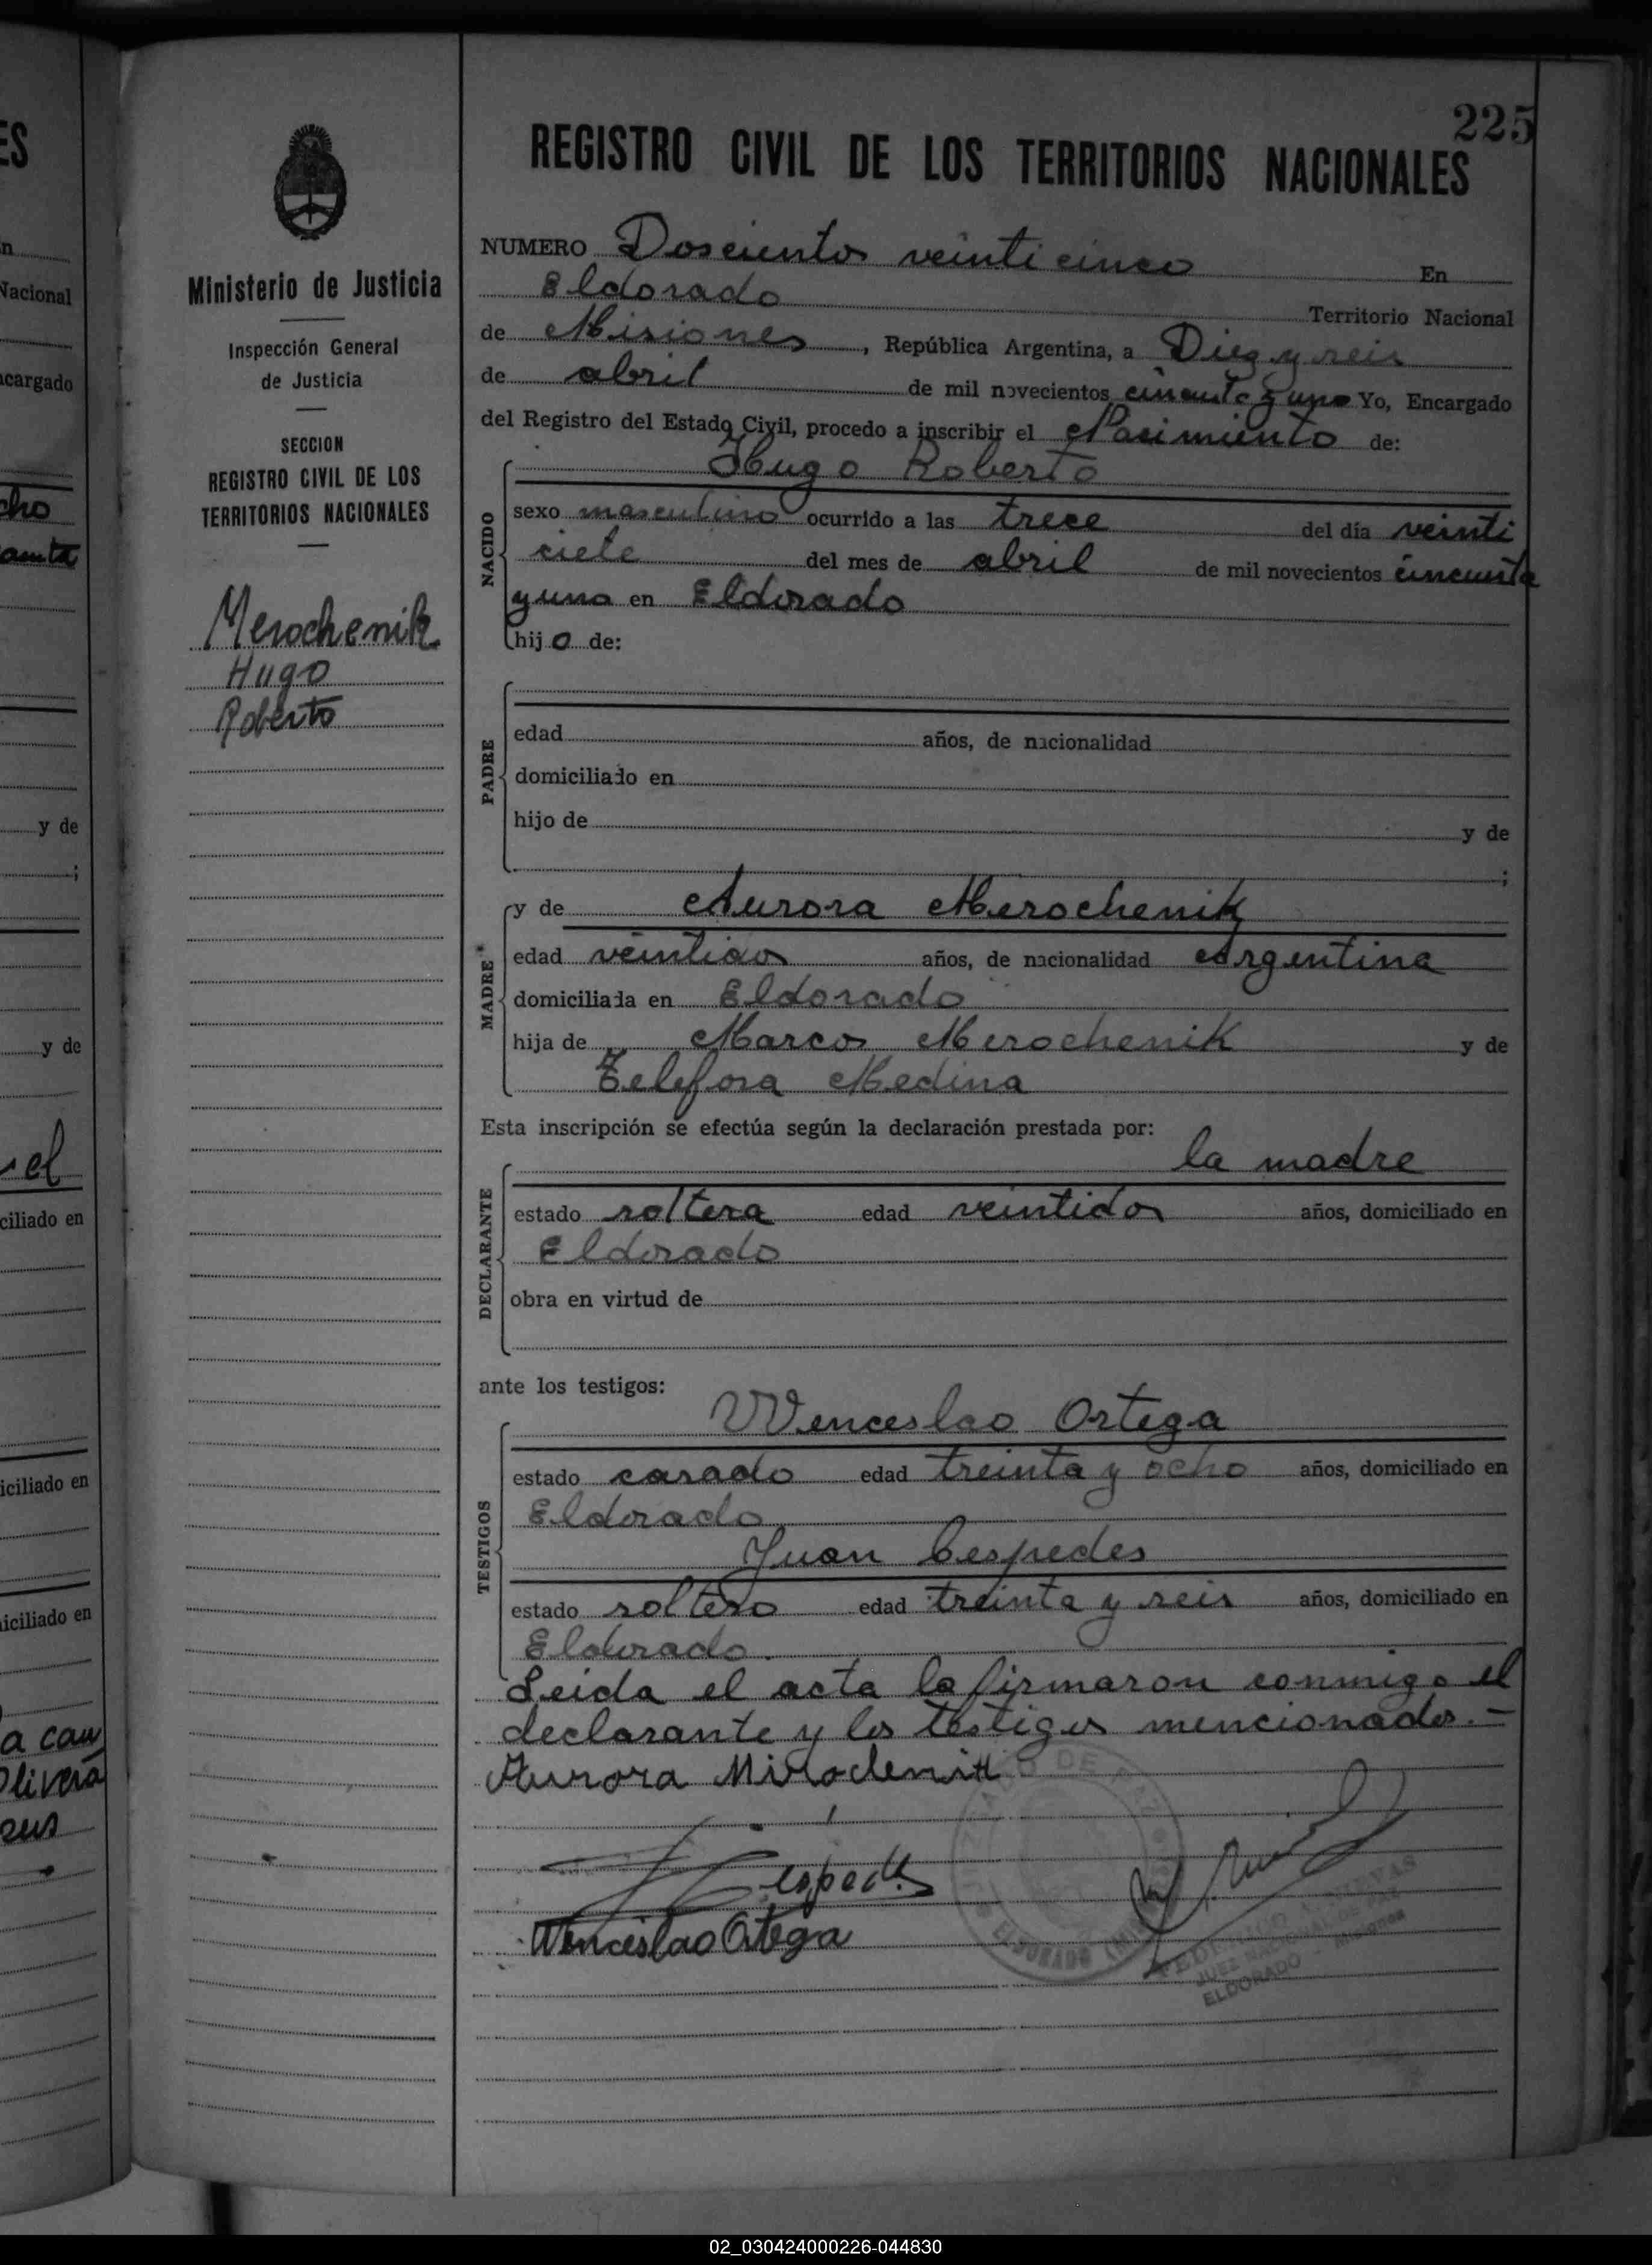 225
REGISTRO CIVIL DE LOS TERRITORIOS NACIONALES
Ministerio de Justicia
Inspección General
de Justicia
SECCION
REGISTRO CIVIL DE LOS
TERRITORIOS NACIONALES
Merochenik
Hugo
Roberto
NUMERO Doscientos veinti cinco En
Eldorado Territorio Nacional
de Misiones, República Argentina, a Diez y seis
de abril de mil novecientos cincuenta y uno Yo, Encargado
del Registro del Estado Civil, procedo a inscribir el Nacimiento de:
Hugo Roberto
NACIDO
sexo masculino ocurrido a las trece del día veinti
ciete del mes de abril de mil novecientos cincuenta
y uno en Eldorado
hijo de:
PADRE
edad años, de nacionalidad
domiciliado en
hijo de y de
;
MADRE
y de Aurora Merochenik
edad veintidos años, de nacionalidad Argentina
domiciliada en Eldorado
hija de Marcos Merochenik y de
Telefora Medina
Esta inscripción se efectúa según la declaración prestada por:
DECLARANTE
la madre
estado soltera edad veintidos años, domiciliado en
Eldorado
obra en virtud de
ante los testigos:
TESTIGOS
Wenceslao Ortega
estado casado edad treinta y ocho años, domiciliado en
Eldorado
Juan Cespedes
estado soltero edad treinta y seis años, domiciliado en
Eldorado.
Leida el acta la firmaron conmigo el
declarante y los testigos mencionados.-
Aurora Miroclenik
Cespedes
Wenceslao Ortega
ELDORADO
JUEZ NACIONAL DE PAZ
ELDORADO Misiones
ES
n
Nacional
ncargado
cho
y de
;
y de
el
ciliado en
iciliado en
iciliado en
Olivera
02_030424000226-044830